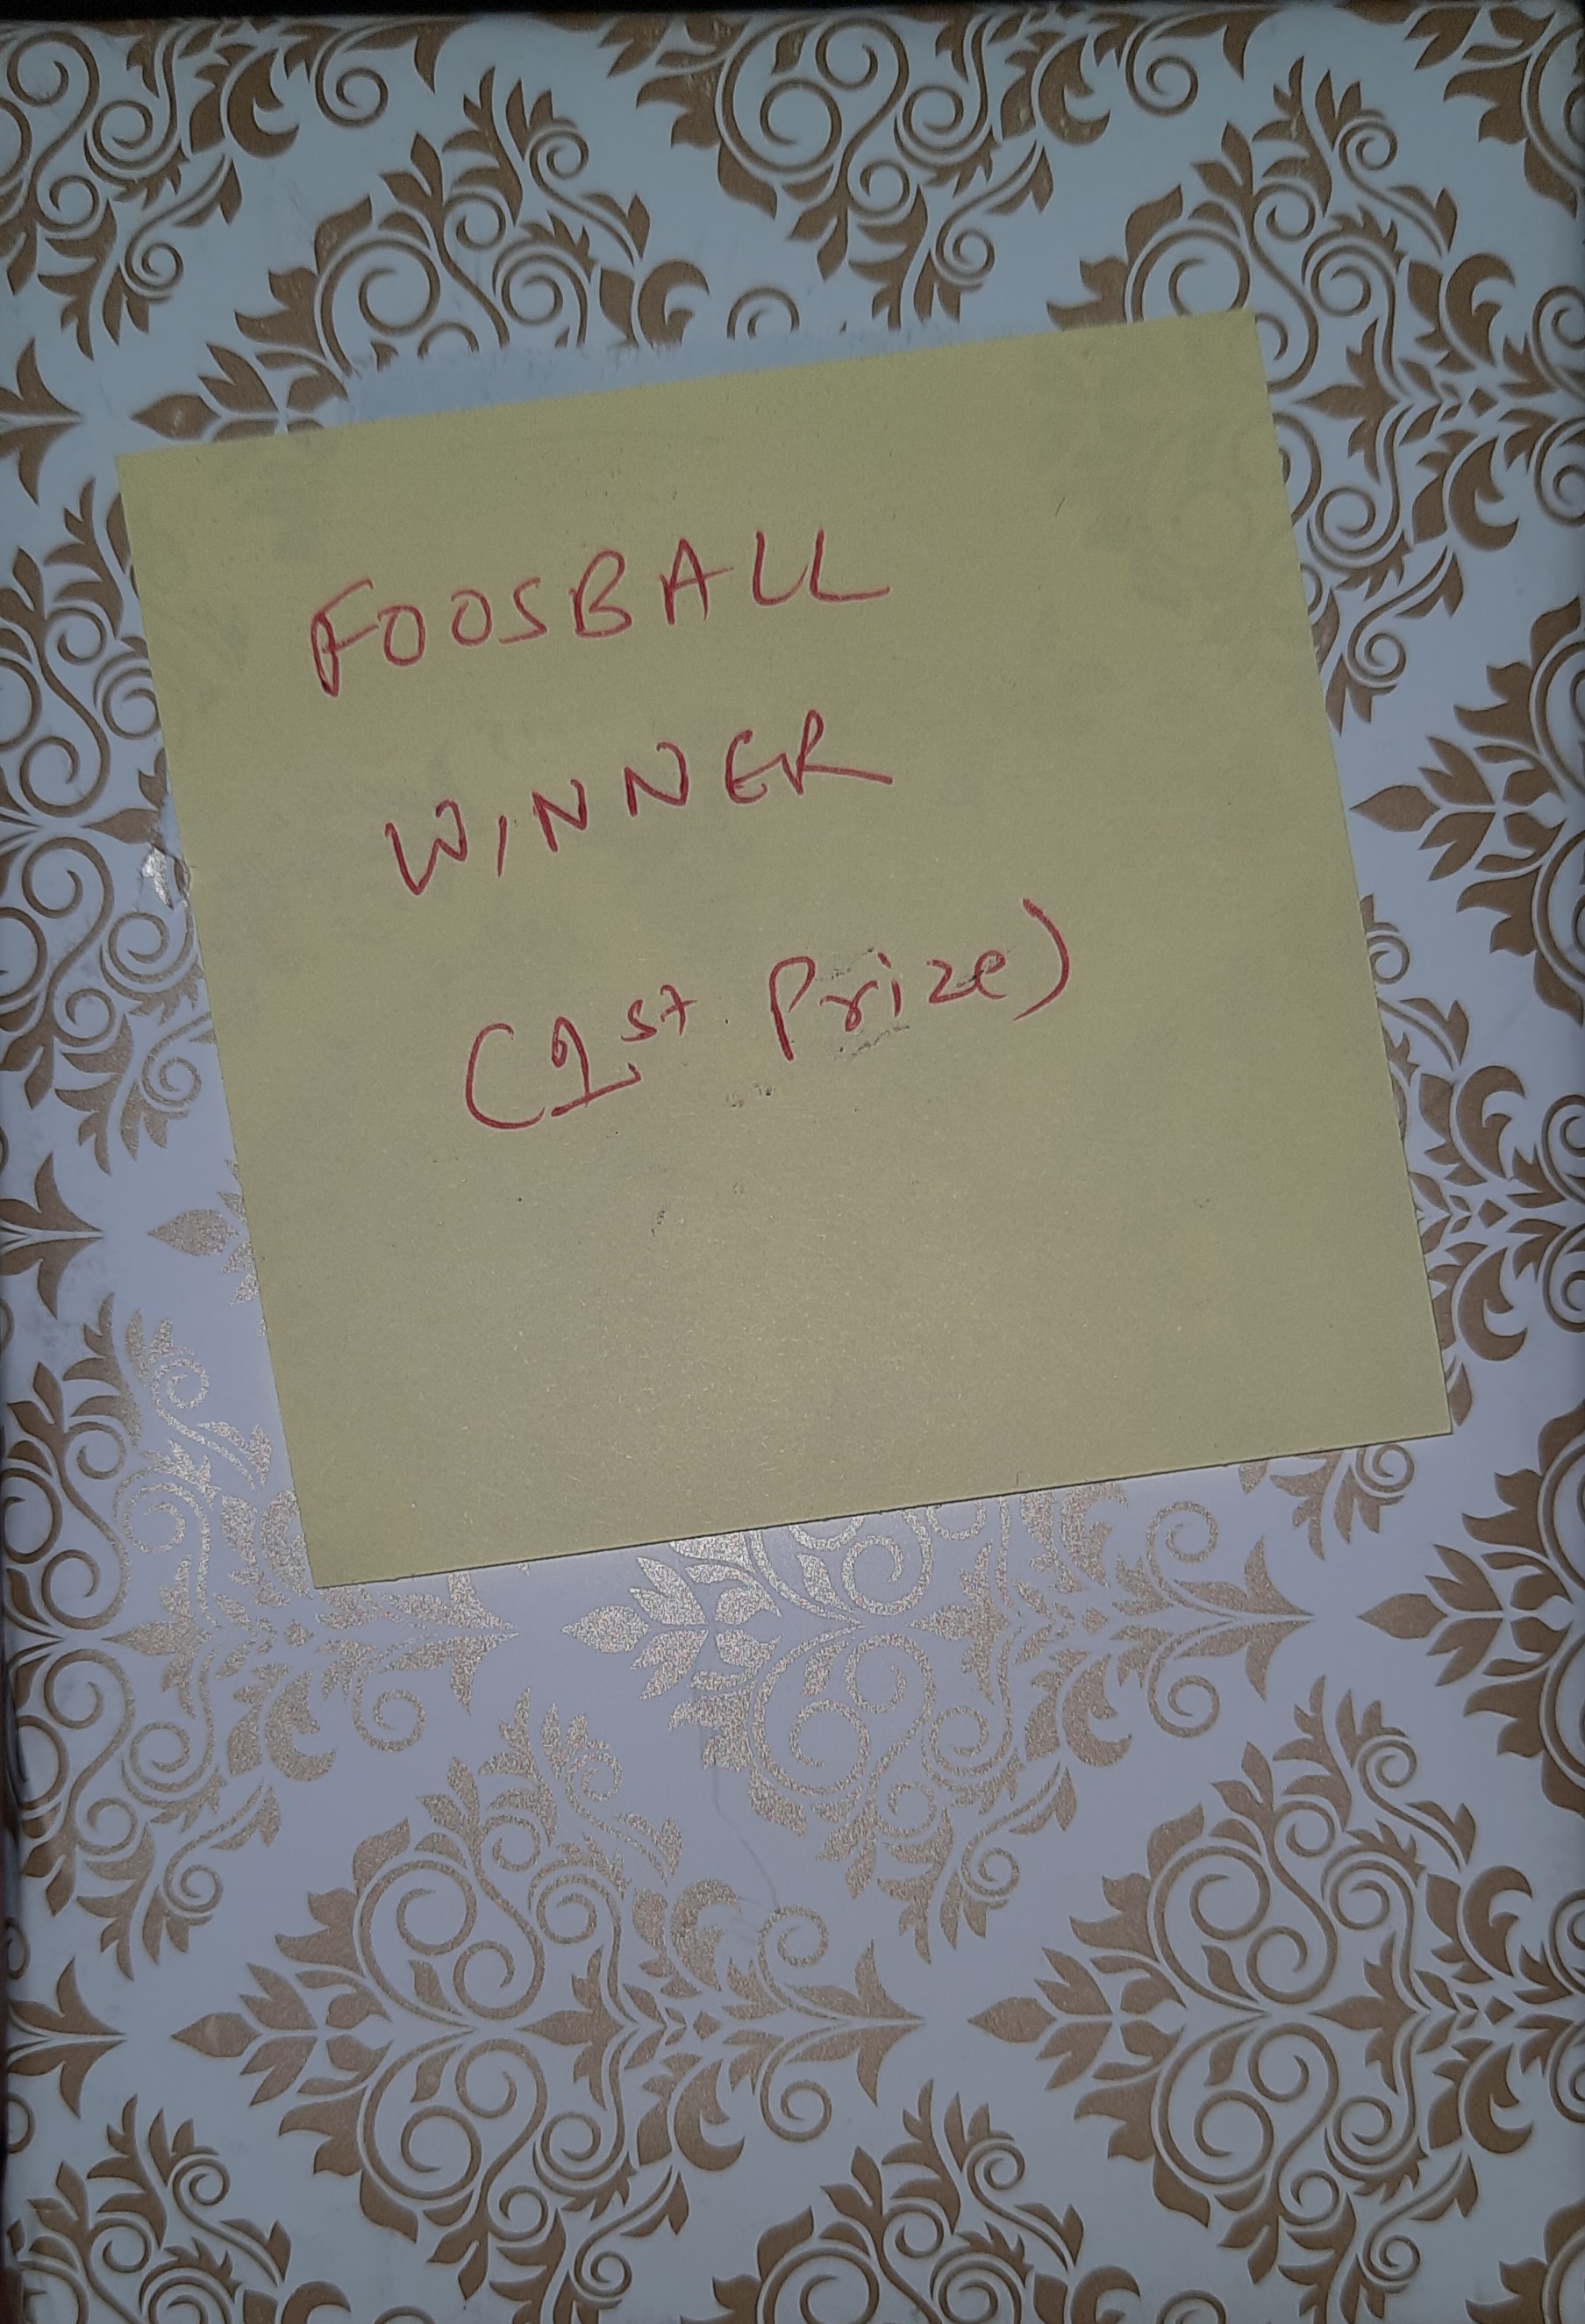 FOOSBALL
WINNER
(1st Prize)